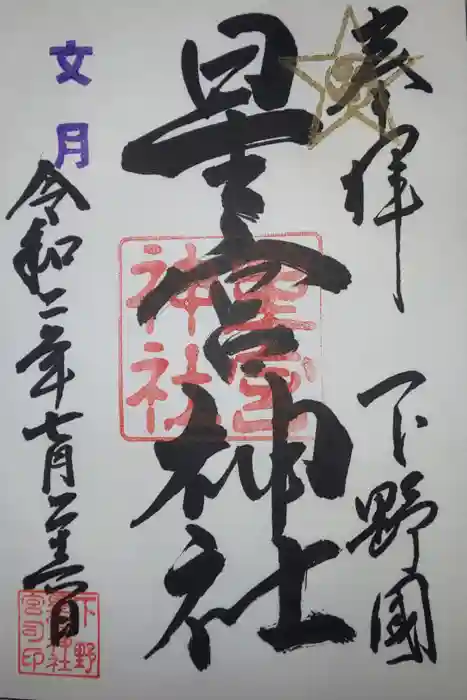 奉拝
下野國
星宮神社
星宮
神社
文月
令和二年七月二十六日
下野
星宮神社
宮司印